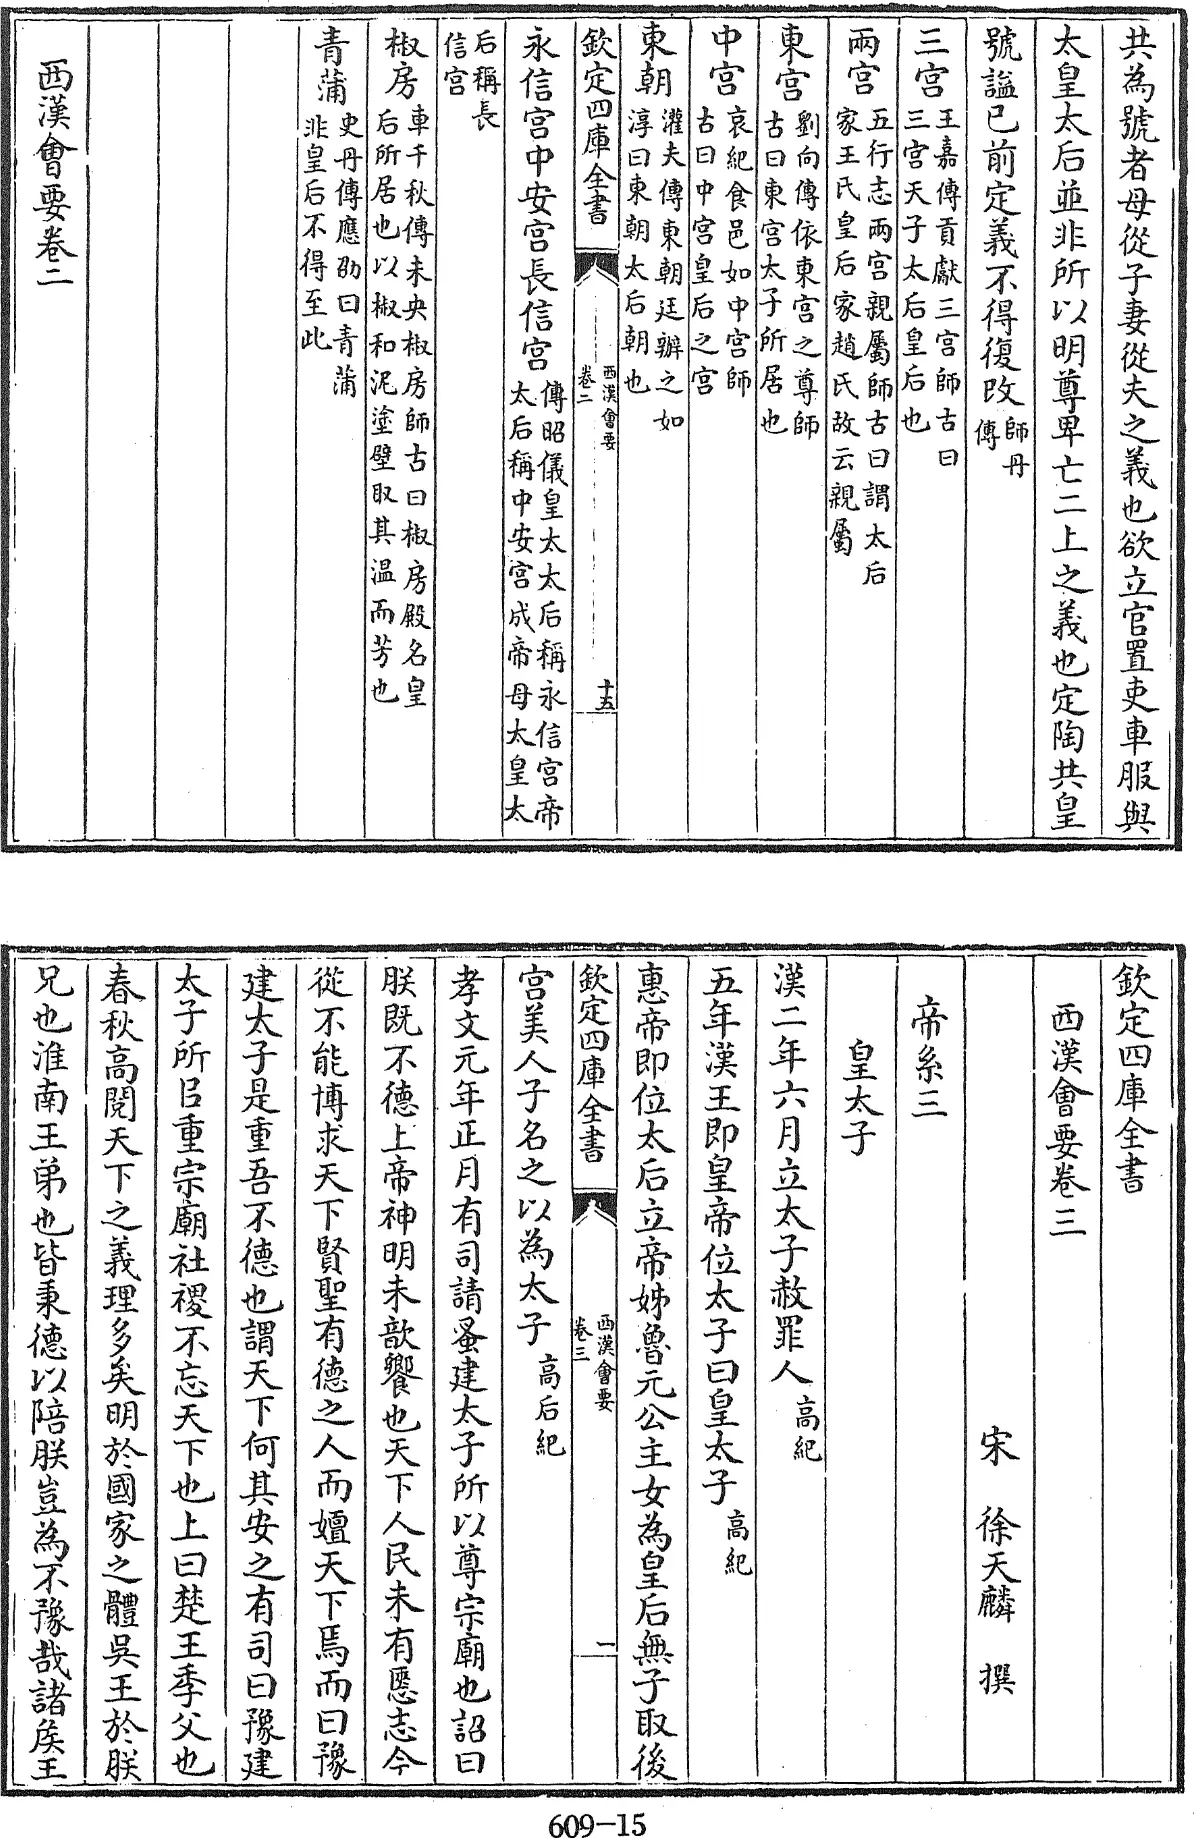 共為號者母從子妻從夫之義也欲立官置吏車服與
太皇太后並非所以明尊卑亡二上之義也定陶共皇
號諡已前定義不得復改師丹
傳
三宫王嘉傳貢獻三宫師古曰
三宫天子太后皇后也
兩宫五行志兩宫親屬師古曰謂太后
家王氏皇后家趙氏故云親屬
東宫劉向傳依東宫之尊師
古曰東宫太子所居也
中宫哀紀食邑如中宫師
古曰中宫皇后之宫
東朝灌夫傳東朝廷辦之如
淳曰東朝太后朝也
欽定四庫全書
西漢會要
卷二
十五
永信宫中安宫長信宫傅昭儀皇太太后稱永信宫帝
太后稱中安宫成帝母太皇太
后稱長
信宫
椒房車千秋傳未央椒房師古曰椒房殿名皇
后所居也以椒和泥塗壁取其温而芳也
青蒲史丹傳應劭曰青蒲
非皇后不得至此
西漢會要卷二
欽定四庫全書
西漢會要卷三
宋 徐天麟 撰
帝系三
皇太子
漢二年六月立太子赦罪人高紀
五年漢王即皇帝位太子曰皇太子高紀
惠帝即位太后立帝姊魯元公主女為皇后無子取後
欽定四庫全書
西漢會要
卷三
一
宫美人子名之以為太子高后紀
孝文元年正月有司請蚤建太子所以尊宗廟也詔曰
朕既不德上帝神明未歆饗也天下人民未有愿志今
從不能博求天下賢聖有德之人而嬗天下焉而曰豫
建太子是重吾不德也謂天下何其安之有司曰豫建
太子所㠯重宗廟社稷不忘天下也上曰楚王季父也
春秋高閱天下之義理多矣明於國家之體吳王於朕
兄也淮南王弟也皆秉德以陪朕豈為不豫哉諸侯王
609-15